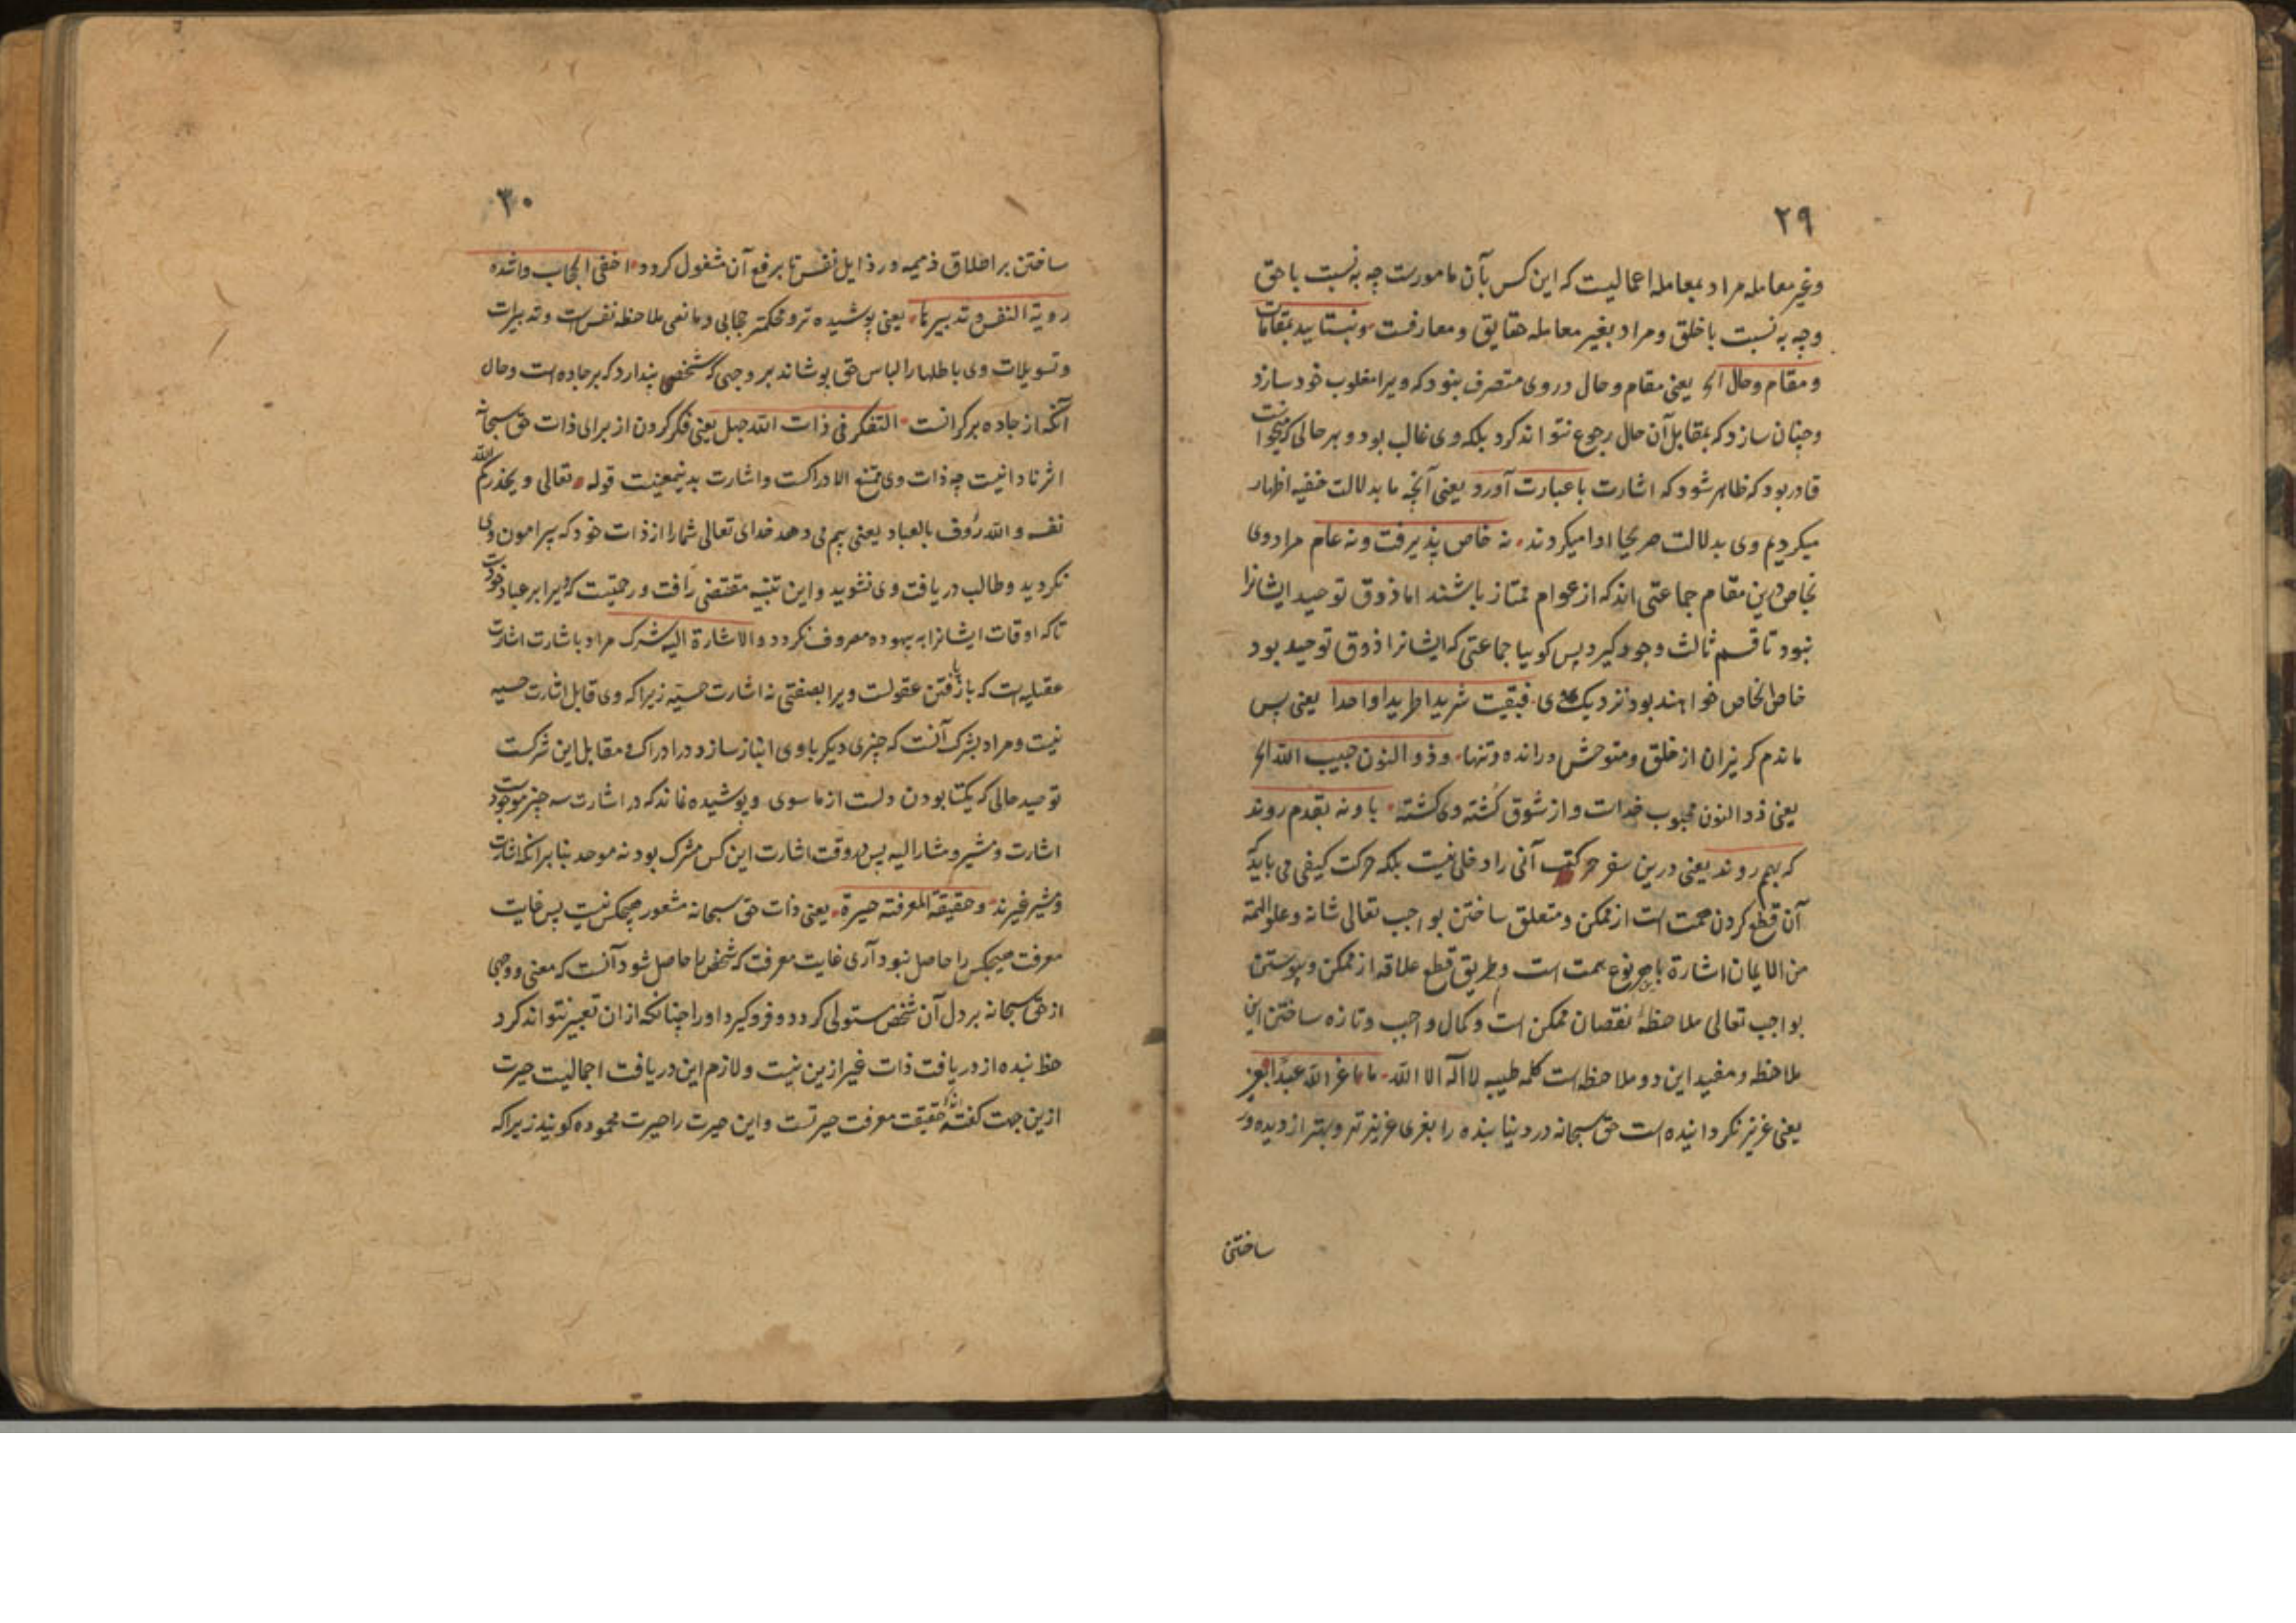 ٢٩
وغیر معامله مراد بمعامله اعمالیست که این کس بآن مامورست چه به نسبت با حق
وچه به نسبت با خلق ومراد بغیر معامله حقایق ومعارفست
ومقام وحال الخ یعنی مقام وحال در وی متصرف نبود که ویرا مغلوب خود سازد
وچنان سازد که بمقابل آن حال رجوع نتواند کرد بلکه وی غالب بود و بهر حالی که
قادر بود که ظاهر شود که اشارت با عبارت آورد یعنی آنچه ما بدلالت خفیه اظهار
میکردیم وی بدلالت صریحا ادا میکردند نه خاص پذیرفت ونه عام مراد وی
بخاص درین مقام جماعتی اند که از عوام ممتاز باشند اما ذوق توحید ایشانرا
نبود تا قسم ثالث وجود گیرد پس کوییا جماعتی که ایشانرا ذوق توحید بود
خاص الخاص خواهند بود نزدیک وی فبقیت شریدا طریدا واحدا یعنی پس
ماندم کریزان از خلق ومتوحش ورانده وتنها وذو النون حبیب الله الخ
یعنی ذو النون محبوب خداست واز شوق کشته وی کشته با ونه بقدم روند
که بهم روند یعنی درین سفر حرکت آنی را دخلی نیست بلکه حرکت کیفی می باید
آن قطع کردن همت است از ممکن ومتعلق ساختن بواجب تعالی شانه وعلو الهمة
من الایمان اشارة باین نوع همت است وطریق قطع علاقه از ممکن وپیوستن
بواجب تعالی ملاحظه نقصان ممکن است وکمال واجب وتازه ساختن این
ملاحظه ومفید این دو ملاحظه است کلمه طیبه لا اله الا الله ما عز الله عبدا بعز
یعنی عزیز نکردانیده است حق سبحانه در دنیا بنده را بعزی عزیزتر وبهتر از دیده ور
ساختن
٣٠
ساختن بر اخلاق ذمیمه ورذایل نفس تا برفع آن مشغول کردد اخفی الحجاب واشده
رویة النفس وتدبیرها یعنی پوشیده تر ومحکمتر حجابی ومانعی ملاحظه نفس است وتدبیرات
وتسویلات وی باطلها را لباس حق پوشاند بر وجهی که شخص پندارد که بر جاده است وحال
آنکه از جاده بر کرانست التفکر فی ذات الله جهل یعنی فکر کردن از برای ذات حق سبحانه
اثر نادانیست چه ذات وی ممتنع الادراکست واشارت بدینمعنیست قوله تعالی ویحذرکم الله
نفسه والله رؤف بالعباد یعنی بیم می دهد خدای تعالی شما را از ذات خود که پیرامون وی
نکردید وطالب دریافت وی نشوید واین تنبیه مقتضی رأفت ورحمتیست که ویرا بر عباد خودست
تا که اوقات ایشانرا به بیهوده مصروف نکردد والاشارة الیه شرک مراد باشارت اشارت
عقلیه است که باز یافتن عقولست ویرا بصفتی نه اشارت حسیه زیرا که وی قابل اشارت حسیه
نیست ومراد بشرک آنست که چیزی دیکر با وی انباز سازد در ادراک ومقابل این شرکست
توحید حالی که یکتا بودن دلست از ما سوی وپوشیده نماند که در اشارت سه چیز موجودست
اشارت ومشیر ومشار الیه پس در وقت اشارت این کس مشرک بود نه موحد بنا بر آنکه اشارت
ومشیر غیرند وحقیقة المعرفة حیرة یعنی ذات حق سبحانه مشعور هیچکس نیست پس غایت
معرفت هیچکس را حاصل نبود آری غایت معرفت که شخص را حاصل شود آنست که معنی ووجهی
از حق سبحانه بر دل آن شخص مستولی کردد وفرو گیرد او را چنانکه از ان تعبیر نتواند کرد
حظ بنده از دریافت ذات غیر ازین نیست ولازم این دریافت اجمالیست حیرت
ازین جهت کفته اند حقیقت معرفت حیرتست واین حیرت را حیرت محموده کویند زیرا که